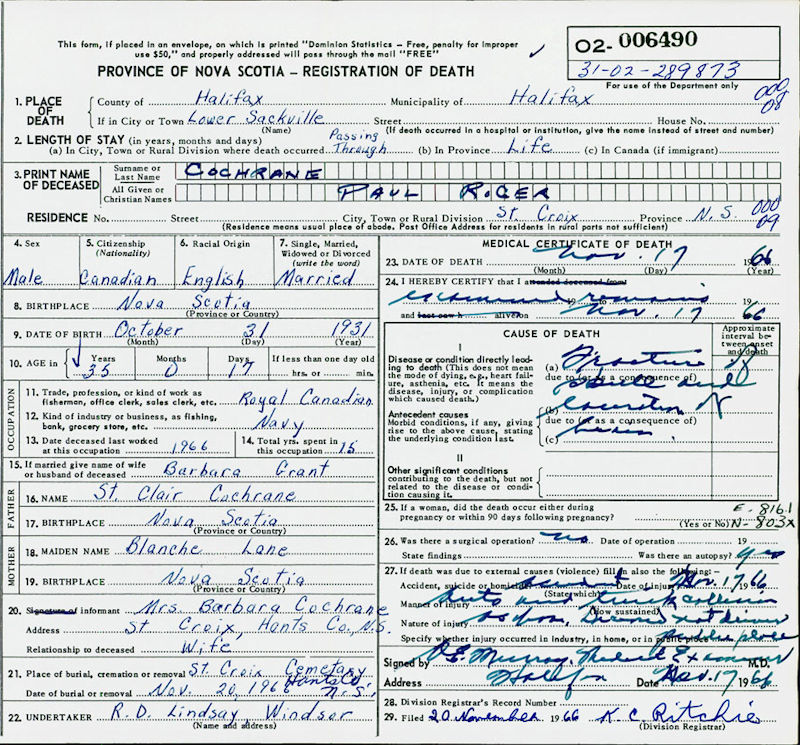 This form, if placed in an envelope, on which is printed "Dominion Statistics – Free, penalty for improper
use $50," and properly addressed will pass through the mail "FREE"
✓
O2- 006490
31-02-289873
For use of the Department only
PROVINCE OF NOVA SCOTIA – REGISTRATION OF DEATH
1. PLACE OF DEATH County of Halifax Municipality of Halifax
If in City or Town Lower Sackville Street House No.
(Name) (If death occurred in a hospital or institution, give the name instead of street and number)
2. LENGTH OF STAY (in years, months and days)
(a) In City, Town or Rural Division where death occurred Passing Through (b) In Province Life (c) In Canada (if immigrant)
3. PRINT NAME OF DECEASED Surname or Last Name COCHRANE
All Given or Christian Names PAUL ROGER
RESIDENCE No. Street City, Town or Rural Division St. Croix Province N.S.
(Residence means usual place of abode. Post Office Address for residents in rural parts not sufficient)
4. Sex Male
5. Citizenship (Nationality) Canadian
6. Racial Origin English
7. Single, Married, Widowed or Divorced (write the word) Married
8. BIRTHPLACE Nova Scotia
(Province or Country)
9. DATE OF BIRTH October 31 1931
(Month) (Day) (Year)
10. AGE in Years 35 Months 0 Days 17 If less than one day old hrs. or min.
OCCUPATION
11. Trade, profession, or kind of work as fisherman, office clerk, sales clerk, etc. Royal Canadian
12. Kind of industry or business, as fishing, bank, grocery store, etc. Navy
13. Date deceased last worked at this occupation 1966
14. Total yrs. spent in this occupation 15
15. If married give name of wife or husband of deceased Barbara Grant
FATHER
16. NAME St. Clair Cochrane
17. BIRTHPLACE Nova Scotia
(Province or Country)
MOTHER
18. MAIDEN NAME Blanche Lane
19. BIRTHPLACE Nova Scotia
(Province or Country)
20. Signature of informant Mrs. Barbara Cochrane
Address St Croix, Hants Co., N.S.
Relationship to deceased Wife
21. Place of burial, cremation or removal St. Croix Cemetary Hants Co
Date of burial or removal Nov. 20, 1966 N.S.
22. UNDERTAKER R.D. Lindsay Windsor
(Name and address)
MEDICAL CERTIFICATE OF DEATH
23. DATE OF DEATH Nov. 17 1966
(Month) (Day) (Year)
24. I HEREBY CERTIFY that I attended deceased from
examined remains 19
and last saw h alive on Nov. 17 66
CAUSE OF DEATH
Approximate interval between onset and death
I
Disease or condition directly leading to death (This does not mean the mode of dying, e.g., heart failure, asthenia, etc. It means the disease, injury, or complication which caused death.)
(a) Fracture of
due to (or as a consequence of)
skull and
Antecedent causes
Morbid conditions, if any, giving rise to the above cause, stating the underlying condition last.
(b) laceration of
due to (or as a consequence of)
(c) brain
II
Other significant conditions contributing to the death, but not related to the disease or condition causing it.
25. If a woman, did the death occur either during pregnancy or within 90 days following pregnancy?
(Yes or No)
E-816.1
N-803X
26. Was there a surgical operation? No Date of operation 19
State findings Was there an autopsy? yes
27. If death was due to external causes (violence) fill in also the following:–
Accident, suicide or homicide? accident Date of injury Nov. 17 66
(State which)
Manner of injury auto and truck collision
(How sustained)
Nature of injury as above. Deceased not driver
Specify whether injury occurred in industry, in home, or in public place public place
Signed by Murray, Medical Examiner M.D.
Address Halifax Date Nov. 17 1966
28. Division Registrar's Record Number
29. Filed 20 November 1966 K. C. Ritchie
(Division Registrar)